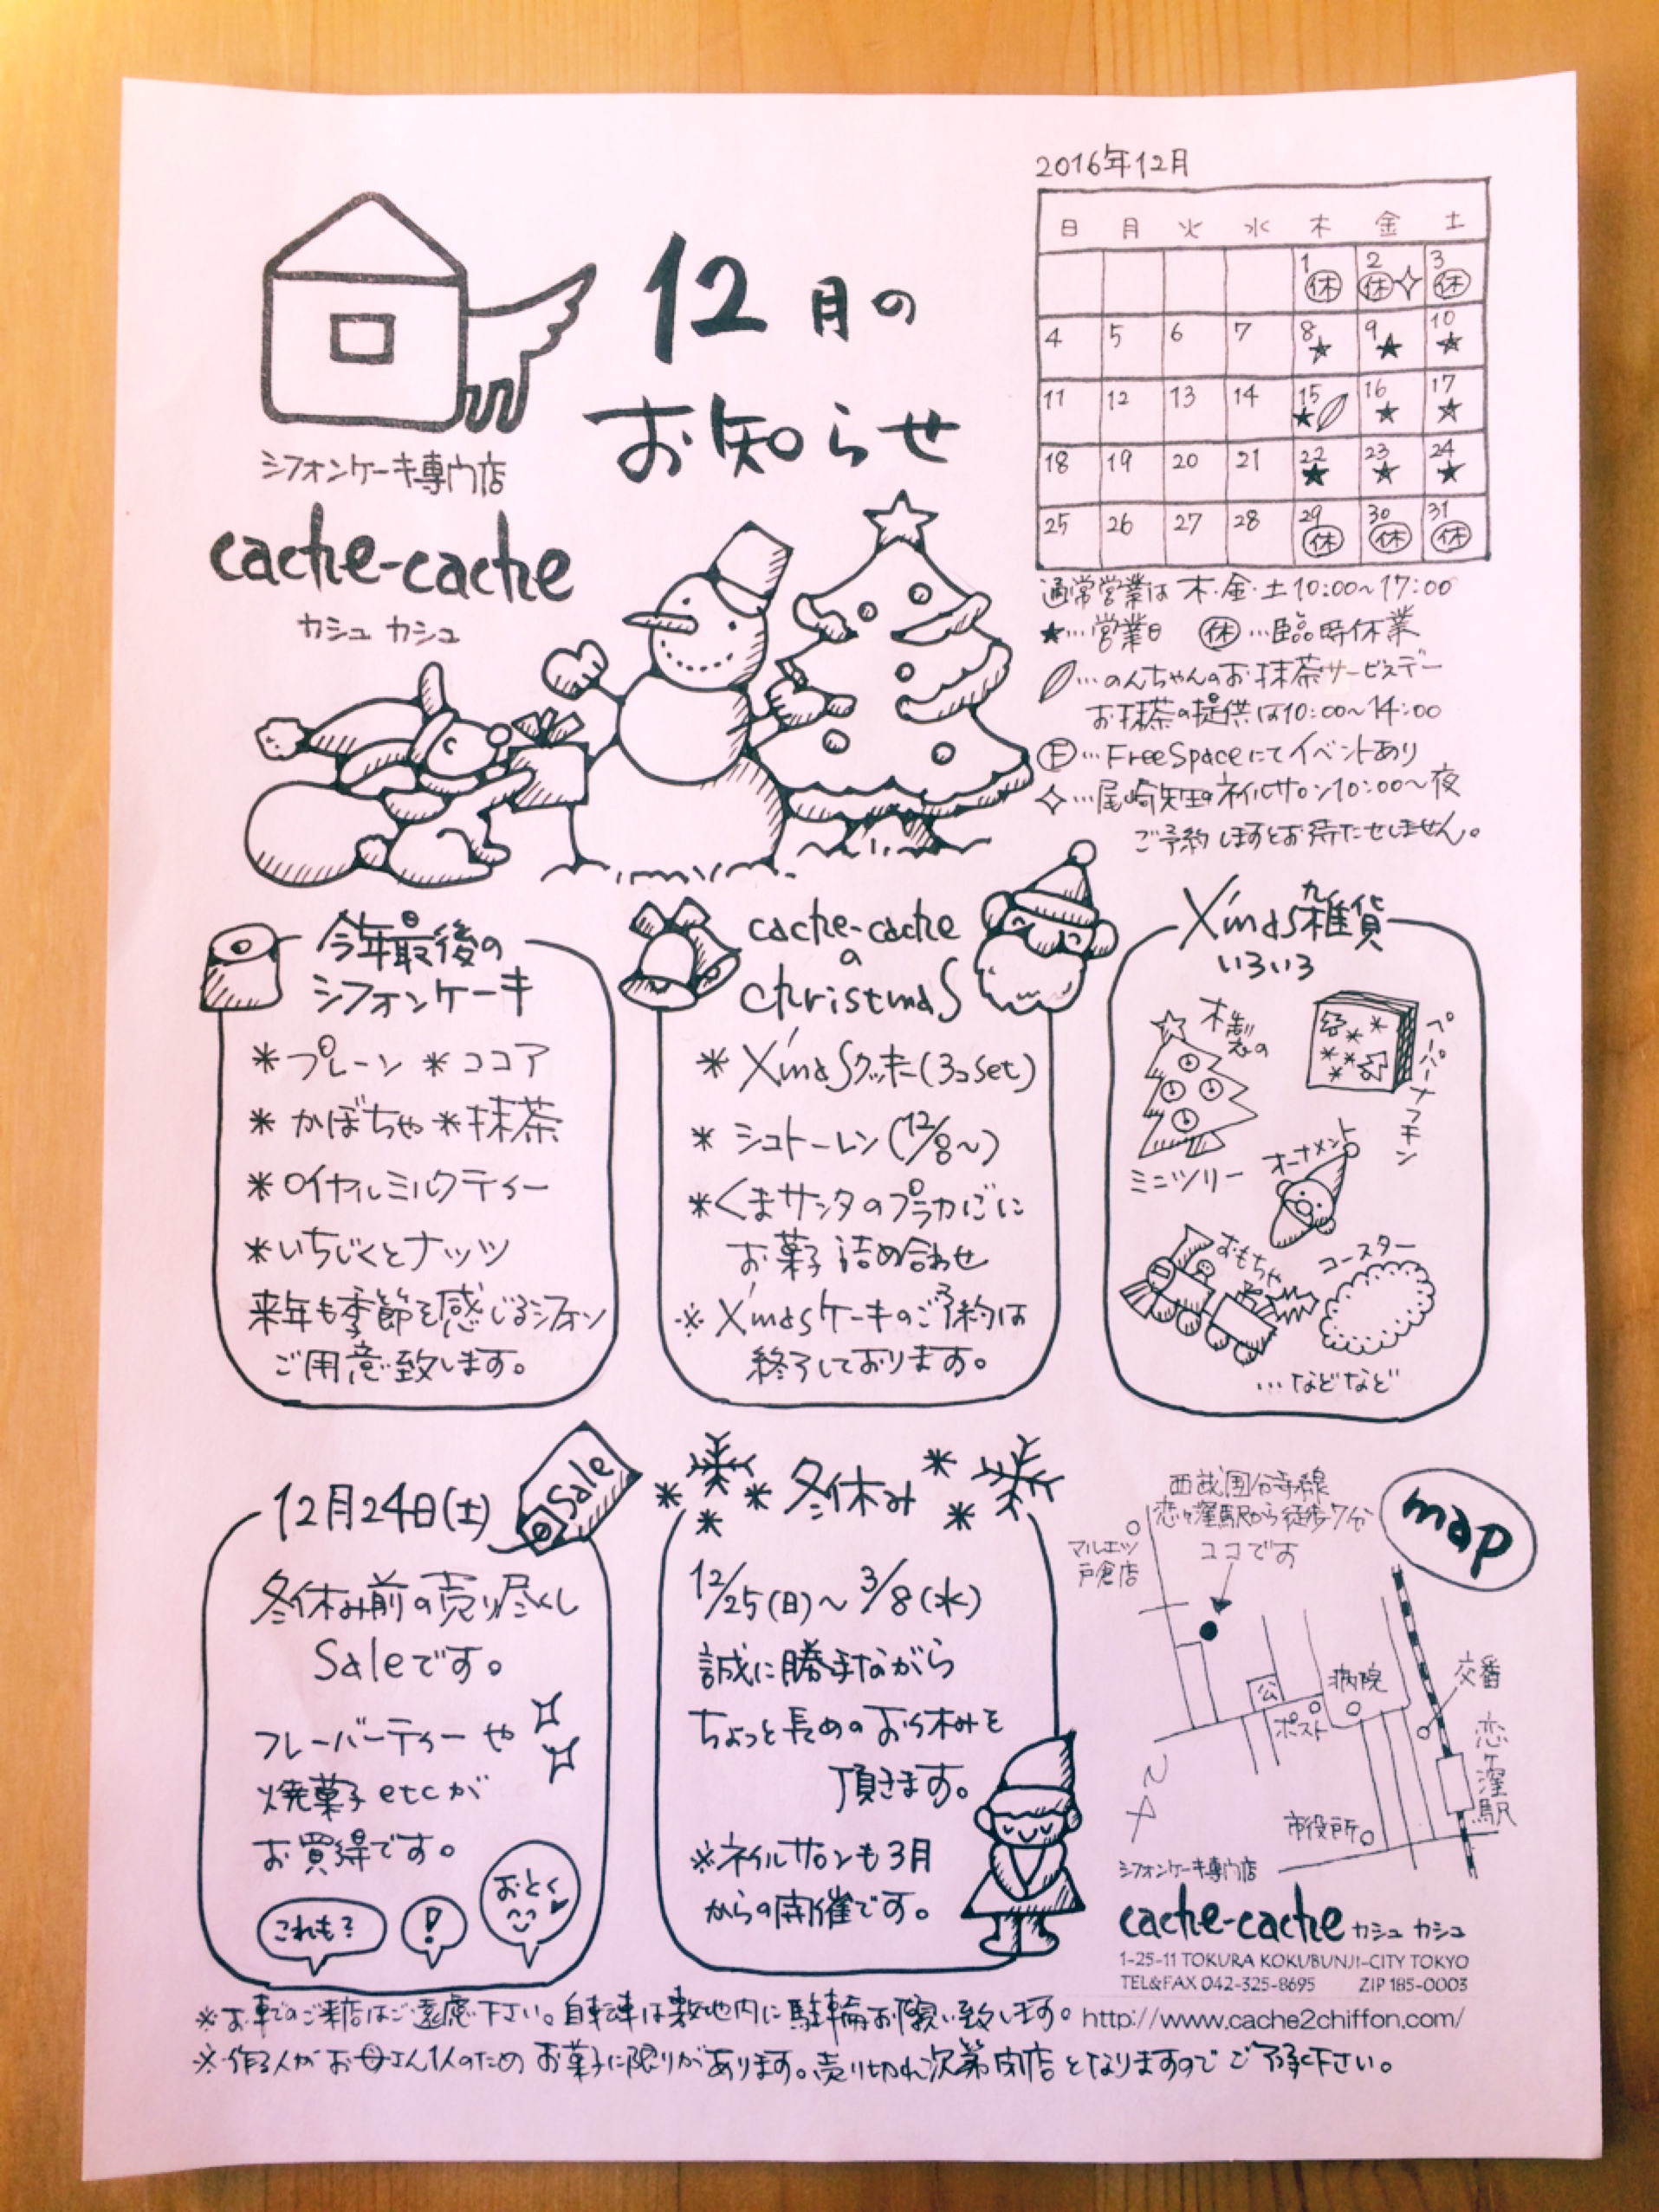 シフォンケーキ専門店
cache-cache
カシュ カシュ
12月の
お知らせ
2016年12月
日 月 火 水 木 金 土
1 休 2 休 3 休
4 5 6 7 8 ★ 9 ★ 10 ★
11 12 13 14 15 ★ 16 ★ 17 ★
18 19 20 21 22 ★ 23 ★ 24 ★
25 26 27 28 29 休 30 休 31 休
通常営業は 木・金・土 10:00〜17:00
★…営業日 休…臨時休業
…のんちゃんのお抹茶サービスデー
お抹茶の提供は10:00〜14:00
Ⓕ…FreeSpaceにてイベントあり
✧…尾崎先生のネイルサロン10:00〜夜
ご予約しますとお待たせしません。
今年最後の
シフォンケーキ
*プレーン *ココア
*かぼちゃ *抹茶
*ロイヤルミルクティー
*いちじくとナッツ
来年も季節を感じるシフォン
ご用意致します。
cache-cache
の
christmas
*X'masクッキー(3コset)
*シュトーレン(12/8〜)
*くまサンタのプラカごに
お菓子詰め合わせ
※X'masケーキのご予約は
終了しております。
X'mas雑貨
いろいろ
木製の
ミニツリー
ペーパーナプキン
オーナメント
おもちゃ
コースター
…などなど
12月24日(土)
Sale
冬休み前の売り尽くし
Saleです。
フレーバーティーや
焼菓子etcが
お買得です。
これも?
!
おとく
冬休み
12/25(日)〜3/8(水)
誠に勝手ながら
ちょっと長めのお休みを
頂きます。
※ネイルサロンも3月
からの開催です。
map
西武国分寺線
恋ヶ窪駅から徒歩7分
ココです
マルエツ
戸倉店
公
ポスト
病院
交番
恋ヶ窪駅
市役所
シフォンケーキ専門店
cache-cache カシュ カシュ
1-25-11 TOKURA KOKUBUNJI-CITY TOKYO
TEL&FAX 042-325-8695 ZIP 185-0003
※お車でのご来店はご遠慮下さい。自転車は敷地内に駐輪お願い致します。http://www.cache2chiffon.com/
※作る人がお母さん1人のためお菓子に限りがあります。売り切れ次第閉店となりますのでご了承下さい。